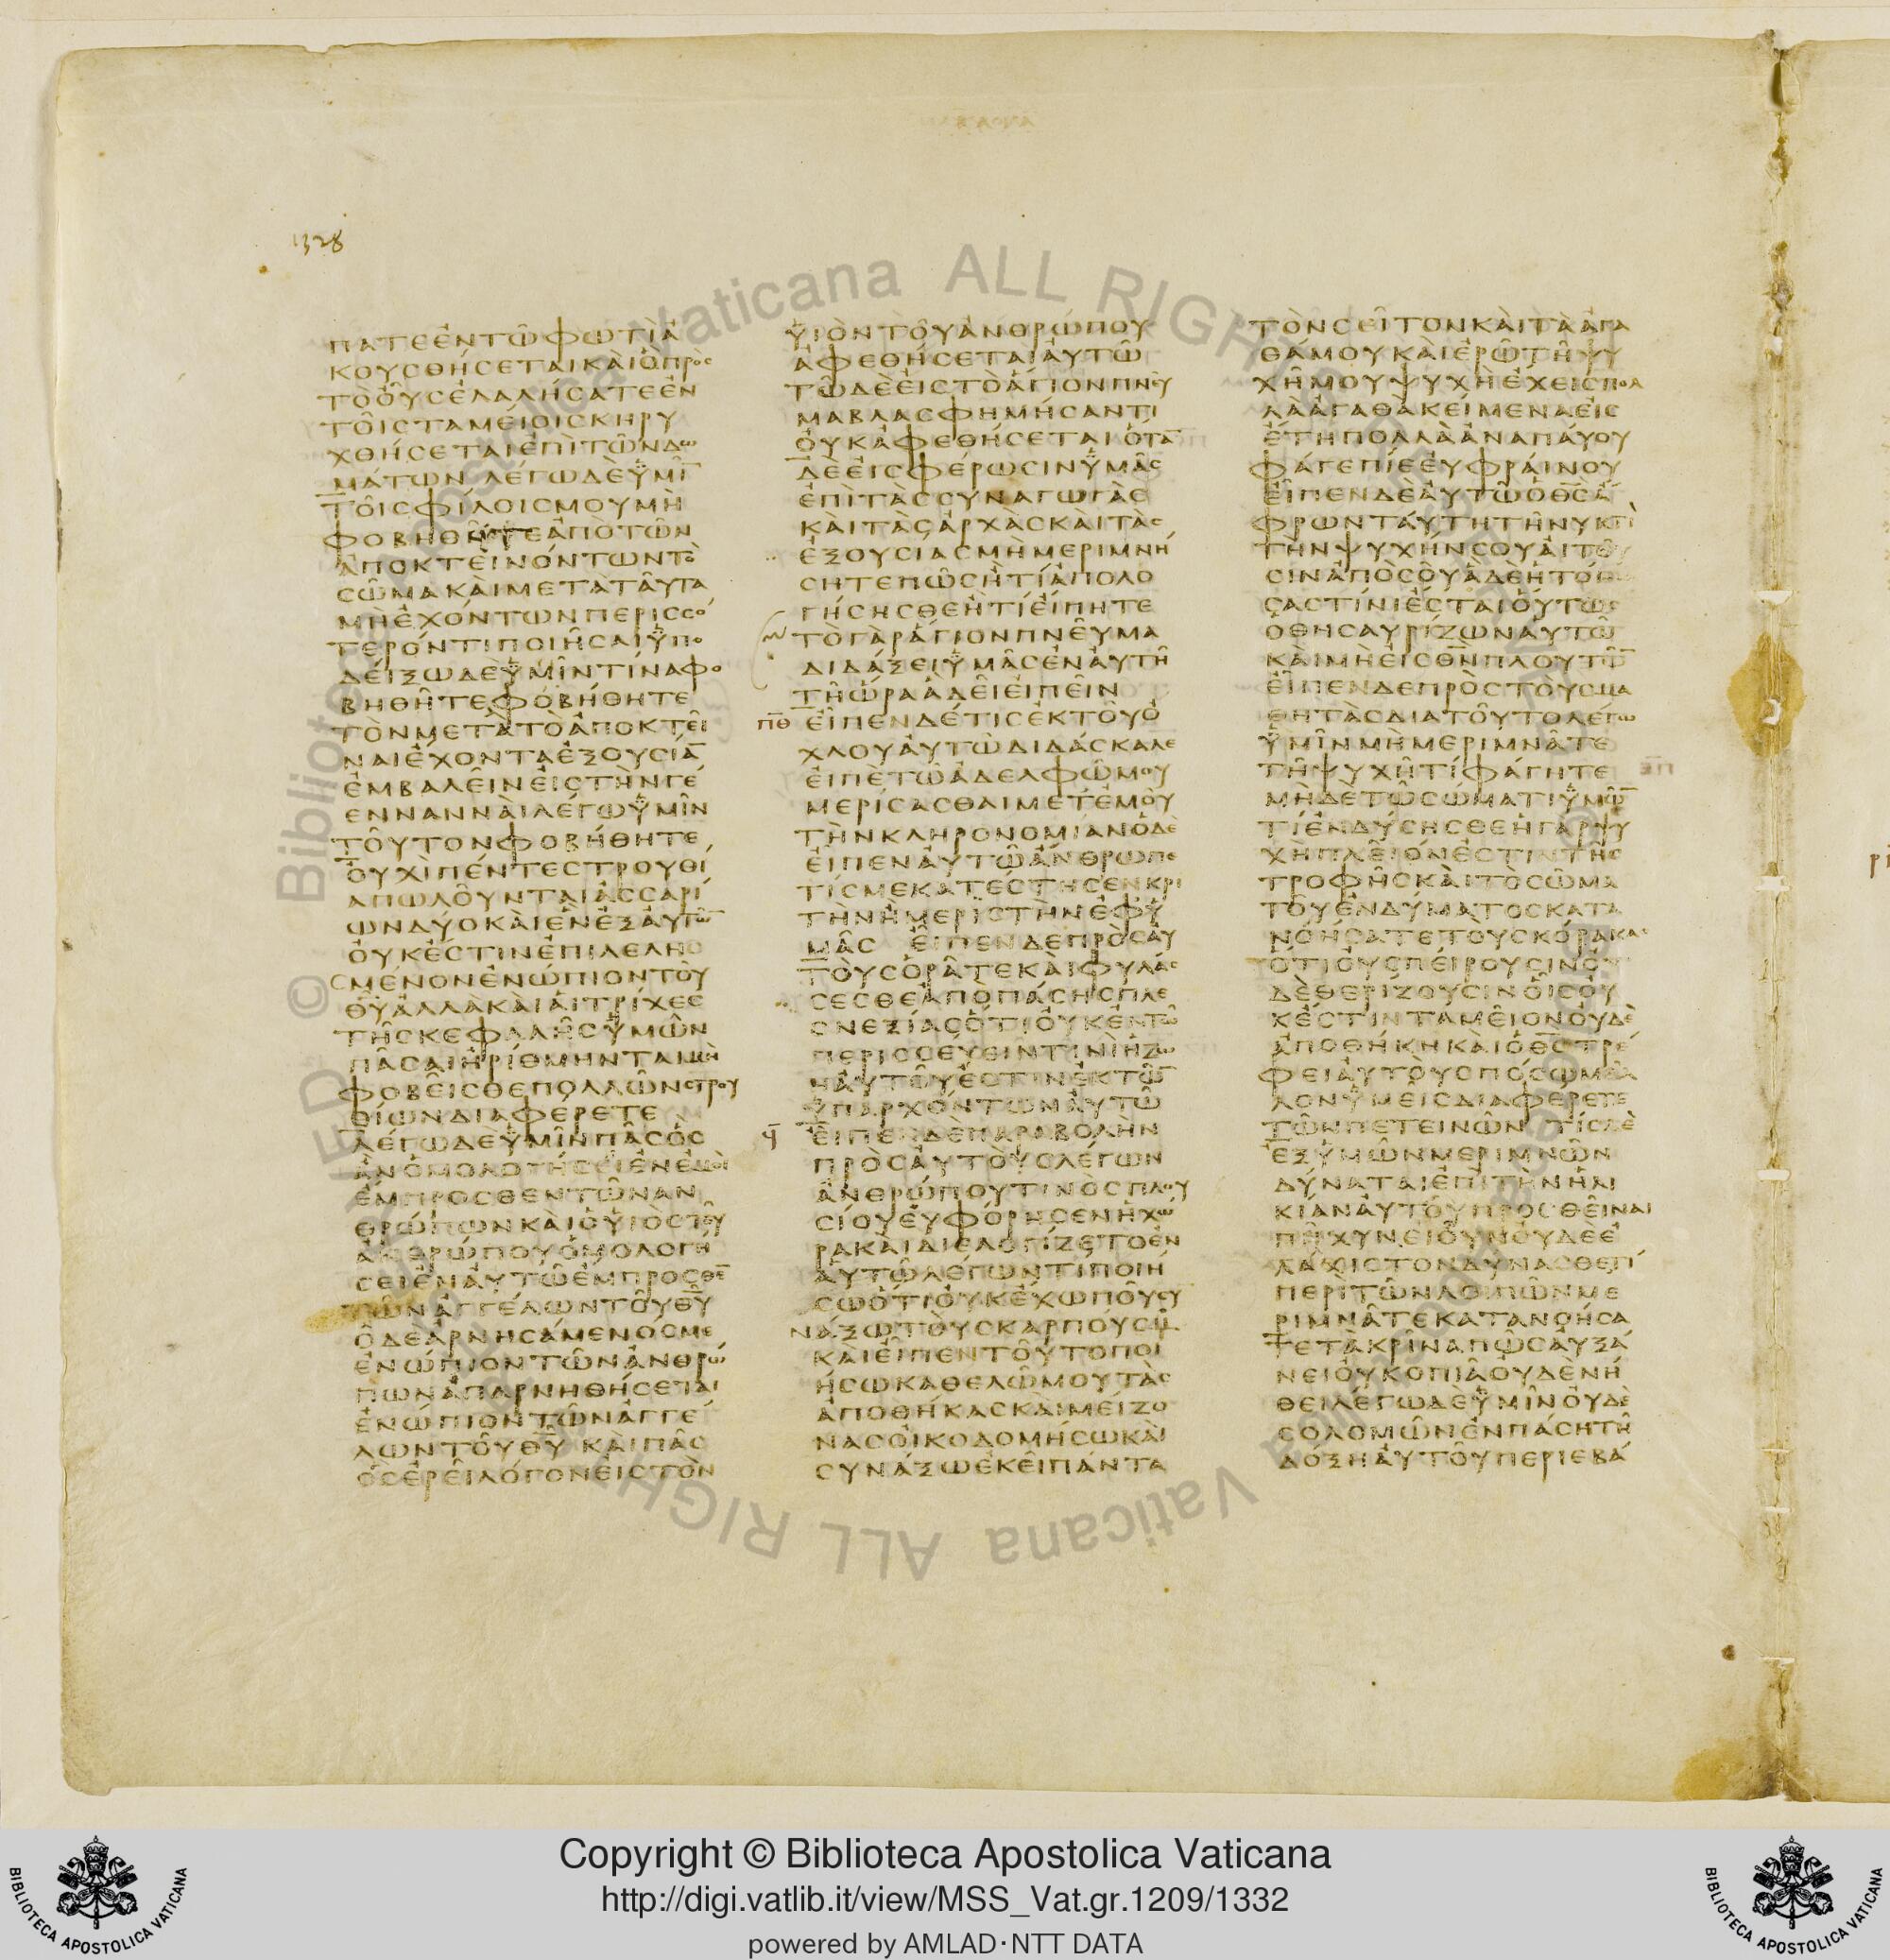 1328
ΠΑΤΕΕΝΤΩΦΩΤΙΑ
ΚΟΥΣΘΗΣΕΤΑΙΚΑΙΟΠΡΟΣ
ΤΟΟΥΣΕΛΑΛΗΣΑΤΕΕΝ
ΤΟΙΣΤΑΜΕΙΟΙΣΚΗΡΥ
ΧΘΗΣΕΤΑΙΕΠΙΤΩΝΔΩ
ΜΑΤΩΝ ΛΕΓΩΔΕΫΜΙ̅
ΤΟΙΣΦΙΛΟΙΣΜΟΥΜΗ
ΦΟΒΗΘΗΤΕΑΠΟΤΩΝ
ΑΠΟΚΤΕΙΝΟΝΤΩΝΤΟ
ΣΩΜΑΚΑΙΜΕΤΑΤΑΥΤΑ
ΜΗΕΧΟΝΤΩΝΠΕΡΙΣΣΟ
ΤΕΡΟΝΤΙΠΟΙΗΣΑΙΫΠΟ
ΔΕΙΞΩΔΕΫΜΙΝΤΙΝΑΦΟ
ΒΗΘΗΤΕΦΟΒΗΘΗΤΕ
ΤΟΝΜΕΤΑΤΟΑΠΟΚΤΕΙ
ΝΑΙΕΧΟΝΤΑΕΞΟΥΣΙΑ̅
ΕΜΒΑΛΕΙΝΕΙΣΤΗΝΓΕ
ΕΝΝΑΝΝΑΙΛΕΓΩΫΜΙΝ
ΤΟΥΤΟΝΦΟΒΗΘΗΤΕ
ΟΥΧΙΠΕΝΤΕΣΤΡΟΥΘΙ
ΑΠΩΛΟΥΝΤΑΙΑΣΣΑΡΙ
ΩΝΔΥΟΚΑΙΕΝΕΞΑΥΤΩ̅
ΟΥΚΕΣΤΙΝΕΠΙΛΕΛΗΣ
ΣΜΕΝΟΝΕΝΩΠΙΟΝΤΟΥ
Θ̅Υ̅ΑΛΛΑΚΑΙΑΙΤΡΙΧΕΣ
ΤΗΣΚΕΦΑΛΗΣΫΜΩΝ
ΠΑΣΑΙΗΡΙΘΜΗΝΤΑΙΜΗ
ΦΟΒΕΙΣΘΕΠΟΛΛΩΝΣΤΡΟΥ
ΘΙΩΝΔΙΑΦΕΡΕΤΕ
ΛΕΓΩΔΕΫΜΙΝΠΑΣΟΣ
ΑΝΟΜΟΛΟΓΗΣΕΙΕΝΕΜΟΙ
ΕΜΠΡΟΣΘΕΝΤΩΝΑΝ
ΘΡΩΠΩΝΚΑΙΟΥΙΟΣΤΟΥ
ΑΝΘΡΩΠΟΥΟΜΟΛΟΓΗ
ΣΕΙΕΝΑΥΤΩΕΜΠΡΟΣΘΕ̅
ΤΩΝΑΓΓΕΛΩΝΤΟΥΘ̅Υ̅
ΟΔΕΑΡΝΗΣΑΜΕΝΟΣΜΕ
ΕΝΩΠΙΟΝΤΩΝΑΝΘΡΩ
ΠΩΝΑΠΑΡΝΗΘΗΣΕΤΑΙ
ΕΝΩΠΙΟΝΤΩΝΑΓΓΕ
ΛΩΝΤΟΥΘ̅Υ̅ ΚΑΙΠΑΣ
ΟΣΕΡΕΙΛΟΓΟΝΕΙΣΤΟΝ
ΥΙΟΝΤΟΥΑΝΘΡΩΠΟΥ
ΑΦΕΘΗΣΕΤΑΙΑΥΤΩ
ΤΩΔΕΕΙΣΤΟΑΓΙΟΝΠΝΕΥ
ΜΑΒΛΑΣΦΗΜΗΣΑΝΤΙ
ΟΥΚΑΦΕΘΗΣΕΤΑΙΟΤΑ̅
ΔΕΕΙΣΦΕΡΩΣΙΝΫΜΑΣ
ΕΠΙΤΑΣΣΥΝΑΓΩΓΑΣ
ΚΑΙΤΑΣΑΡΧΑΣΚΑΙΤΑΣ
ΕΞΟΥΣΙΑΣΜΗΜΕΡΙΜΝΗ
ΣΗΤΕΠΩΣΗΤΙΑΠΟΛΟ
ΓΗΣΗΣΘΕΗΤΙΕΙΠΗΤΕ
ΤΟΓΑΡΑΓΙΟΝΠΝΕΥΜΑ
ΔΙΔΑΞΕΙΫΜΑΣΕΝΑΥΤΗ
ΤΗΩΡΑΑΔΕΙΕΙΠΕΙΝ
Π̅Θ̅ ΕΙΠΕΝΔΕΤΙΣΕΚΤΟΥΟ
ΧΛΟΥΑΥΤΩΔΙΔΑΣΚΑΛΕ
ΕΙΠΕΤΩΑΔΕΛΦΩΜΟΥ
ΜΕΡΙΣΑΣΘΑΙΜΕΤΕΜΟΥ
ΤΗΝΚΛΗΡΟΝΟΜΙΑΝΟΔΕ
ΕΙΠΕΝΑΥΤΩΑΝΘΡΩΠΕ
ΤΙΣΜΕΚΑΤΕΣΤΗΣΕΝΚΡΙ
ΤΗΝΗΜΕΡΙΣΤΗΝΕΦΫ
ΜΑΣ ΕΙΠΕΝΔΕΠΡΟΣΑΥ
ΤΟΥΣΟΡΑΤΕΚΑΙΦΥΛΑΣ
ΣΕΣΘΕΑΠΟΠΑΣΗΣΠΛΕ
ΟΝΕΞΙΑΣΟΤΙΟΥΚΕΝΤΩ
ΠΕΡΙΣΣΕΥΕΙΝΤΙΝΙΗΖΩ
ΗΑΥΤΟΥΕΣΤΙΝΕΚΤΩ̅
ΫΠΑΡΧΟΝΤΩΝΑΥΤΩ
Ϟ̅ ΕΙΠΕΝΔΕΠΑΡΑΒΟΛΗΝ
ΠΡΟΣΑΥΤΟΥΣΛΕΓΩΝ
ΑΝΘΡΩΠΟΥΤΙΝΟΣΠΛΟΥ
ΣΙΟΥΕΥΦΟΡΗΣΕΝΗΧΩ
ΡΑΚΑΙΔΙΕΛΟΓΙΖΕΤΟΕΝ
ΑΥΤΩΛΕΓΩΝΤΙΠΟΙΗ
ΣΩΟΤΙΟΥΚΕΧΩΠΟΥΣΥ
ΝΑΞΩΤΟΥΣΚΑΡΠΟΥΣΜΟΥ
ΚΑΙΕΙΠΕΝΤΟΥΤΟΠΟΙ
ΗΣΩΚΑΘΕΛΩΜΟΥΤΑΣ
ΑΠΟΘΗΚΑΣΚΑΙΜΕΙΖΟ
ΝΑΣΟΙΚΟΔΟΜΗΣΩΚΑΙ
ΣΥΝΑΞΩΕΚΕΙΠΑΝΤΑ
ΤΟΝΣΕΙΤΟΝΚΑΙΤΑΑΓΑ
ΘΑΜΟΥΚΑΙΕΡΩΤΗΨΥ
ΧΗΜΟΥΨΥΧΗΕΧΕΙΣΠΟΛ
ΛΑΑΓΑΘΑΚΕΙΜΕΝΑΕΙΣ
ΕΤΗΠΟΛΛΑΑΝΑΠΑΥΟΥ
ΦΑΓΕΠΙΕΕΥΦΡΑΙΝΟΥ
ΕΙΠΕΝΔΕΑΥΤΩΟΘ̅Σ̅Α
ΦΡΩΝΤΑΥΤΗΤΗΝΥΚΤΙ
ΤΗΝΨΥΧΗΝΣΟΥΑΙΤΟΥ
ΣΙΝΑΠΟΣΟΥΑΔΕΗΤΟΙΜΑ
ΣΑΣΤΙΝΙΕΣΤΑΙΟΥΤΩΣ
ΟΘΗΣΑΥΡΙΖΩΝΑΥΤΩ
ΚΑΙΜΗΕΙΣΘ̅Ν̅ΠΛΟΥΤΩ̅
ΕΙΠΕΝΔΕΠΡΟΣΤΟΥΣΜΑ
ΘΗΤΑΣΔΙΑΤΟΥΤΟΛΕΓΩ
ΫΜΙΝΜΗΜΕΡΙΜΝΑΤΕ
ΤΗΨΥΧΗΤΙΦΑΓΗΤΕ
ΜΗΔΕΤΩΣΩΜΑΤΙΫΜΩ̅
ΤΙΕΝΔΥΣΗΣΘΕΗΓΑΡΨΥ
ΧΗΠΛΕΙΟΝΕΣΤΙΝΤΗΣ
ΤΡΟΦΗΣΚΑΙΤΟΣΩΜΑ
ΤΟΥΕΝΔΥΜΑΤΟΣΚΑΤΑ
ΝΟΗΣΑΤΕΤΟΥΣΚΟΡΑΚΑΣ
ΟΤΙΟΥΣΠΕΙΡΟΥΣΙΝΟΥ
ΔΕΘΕΡΙΖΟΥΣΙΝΟΙΣΟΥ
ΚΕΣΤΙΝΤΑΜΕΙΟΝΟΥΔΕ
ΑΠΟΘΗΚΗΚΑΙΟΘ̅Σ̅ΤΡΕ
ΦΕΙΑΥΤΟΥΣΠΟΣΩΜΑΛ
ΛΟΝΫΜΕΙΣΔΙΑΦΕΡΕΤΕ
ΤΩΝΠΕΤΕΙΝΩΝ ΤΙΣΔΕ
ΕΞΫΜΩΝΜΕΡΙΜΝΩΝ
ΔΥΝΑΤΑΙΕΠΙΤΗΝΗΛΙ
ΚΙΑΝΑΥΤΟΥΠΡΟΣΘΕΙΝΑΙ
ΠΗΧΥΝΕΙΟΥΝΟΥΔΕΕ
ΛΑΧΙΣΤΟΝΔΥΝΑΣΘΕΤΙ
ΠΕΡΙΤΩΝΛΟΙΠΩΝΜΕ
ΡΙΜΝΑΤΕΚΑΤΑΝΟΗΣΑ
ΤΕΤΑΚΡΙΝΑΠΩΣΑΥΞΑ
ΝΕΙΟΥΚΟΠΙΑΟΥΔΕΝΗ
ΘΕΙΛΕΓΩΔΕΫΜΙΝΟΥΔΕ
ΣΟΛΟΜΩΝΕΝΠΑΣΗΤΗ
ΔΟΞΗΑΥΤΟΥΠΕΡΙΕΒΑ
Copyright © Biblioteca Apostolica Vaticana
http://digi.vatlib.it/view/MSS_Vat.gr.1209/1332
powered by AMLAD·NTT DATA
BIBLIOTECA APOSTOLICA VATICANA
BIBLIOTECA APOSTOLICA VATICANA